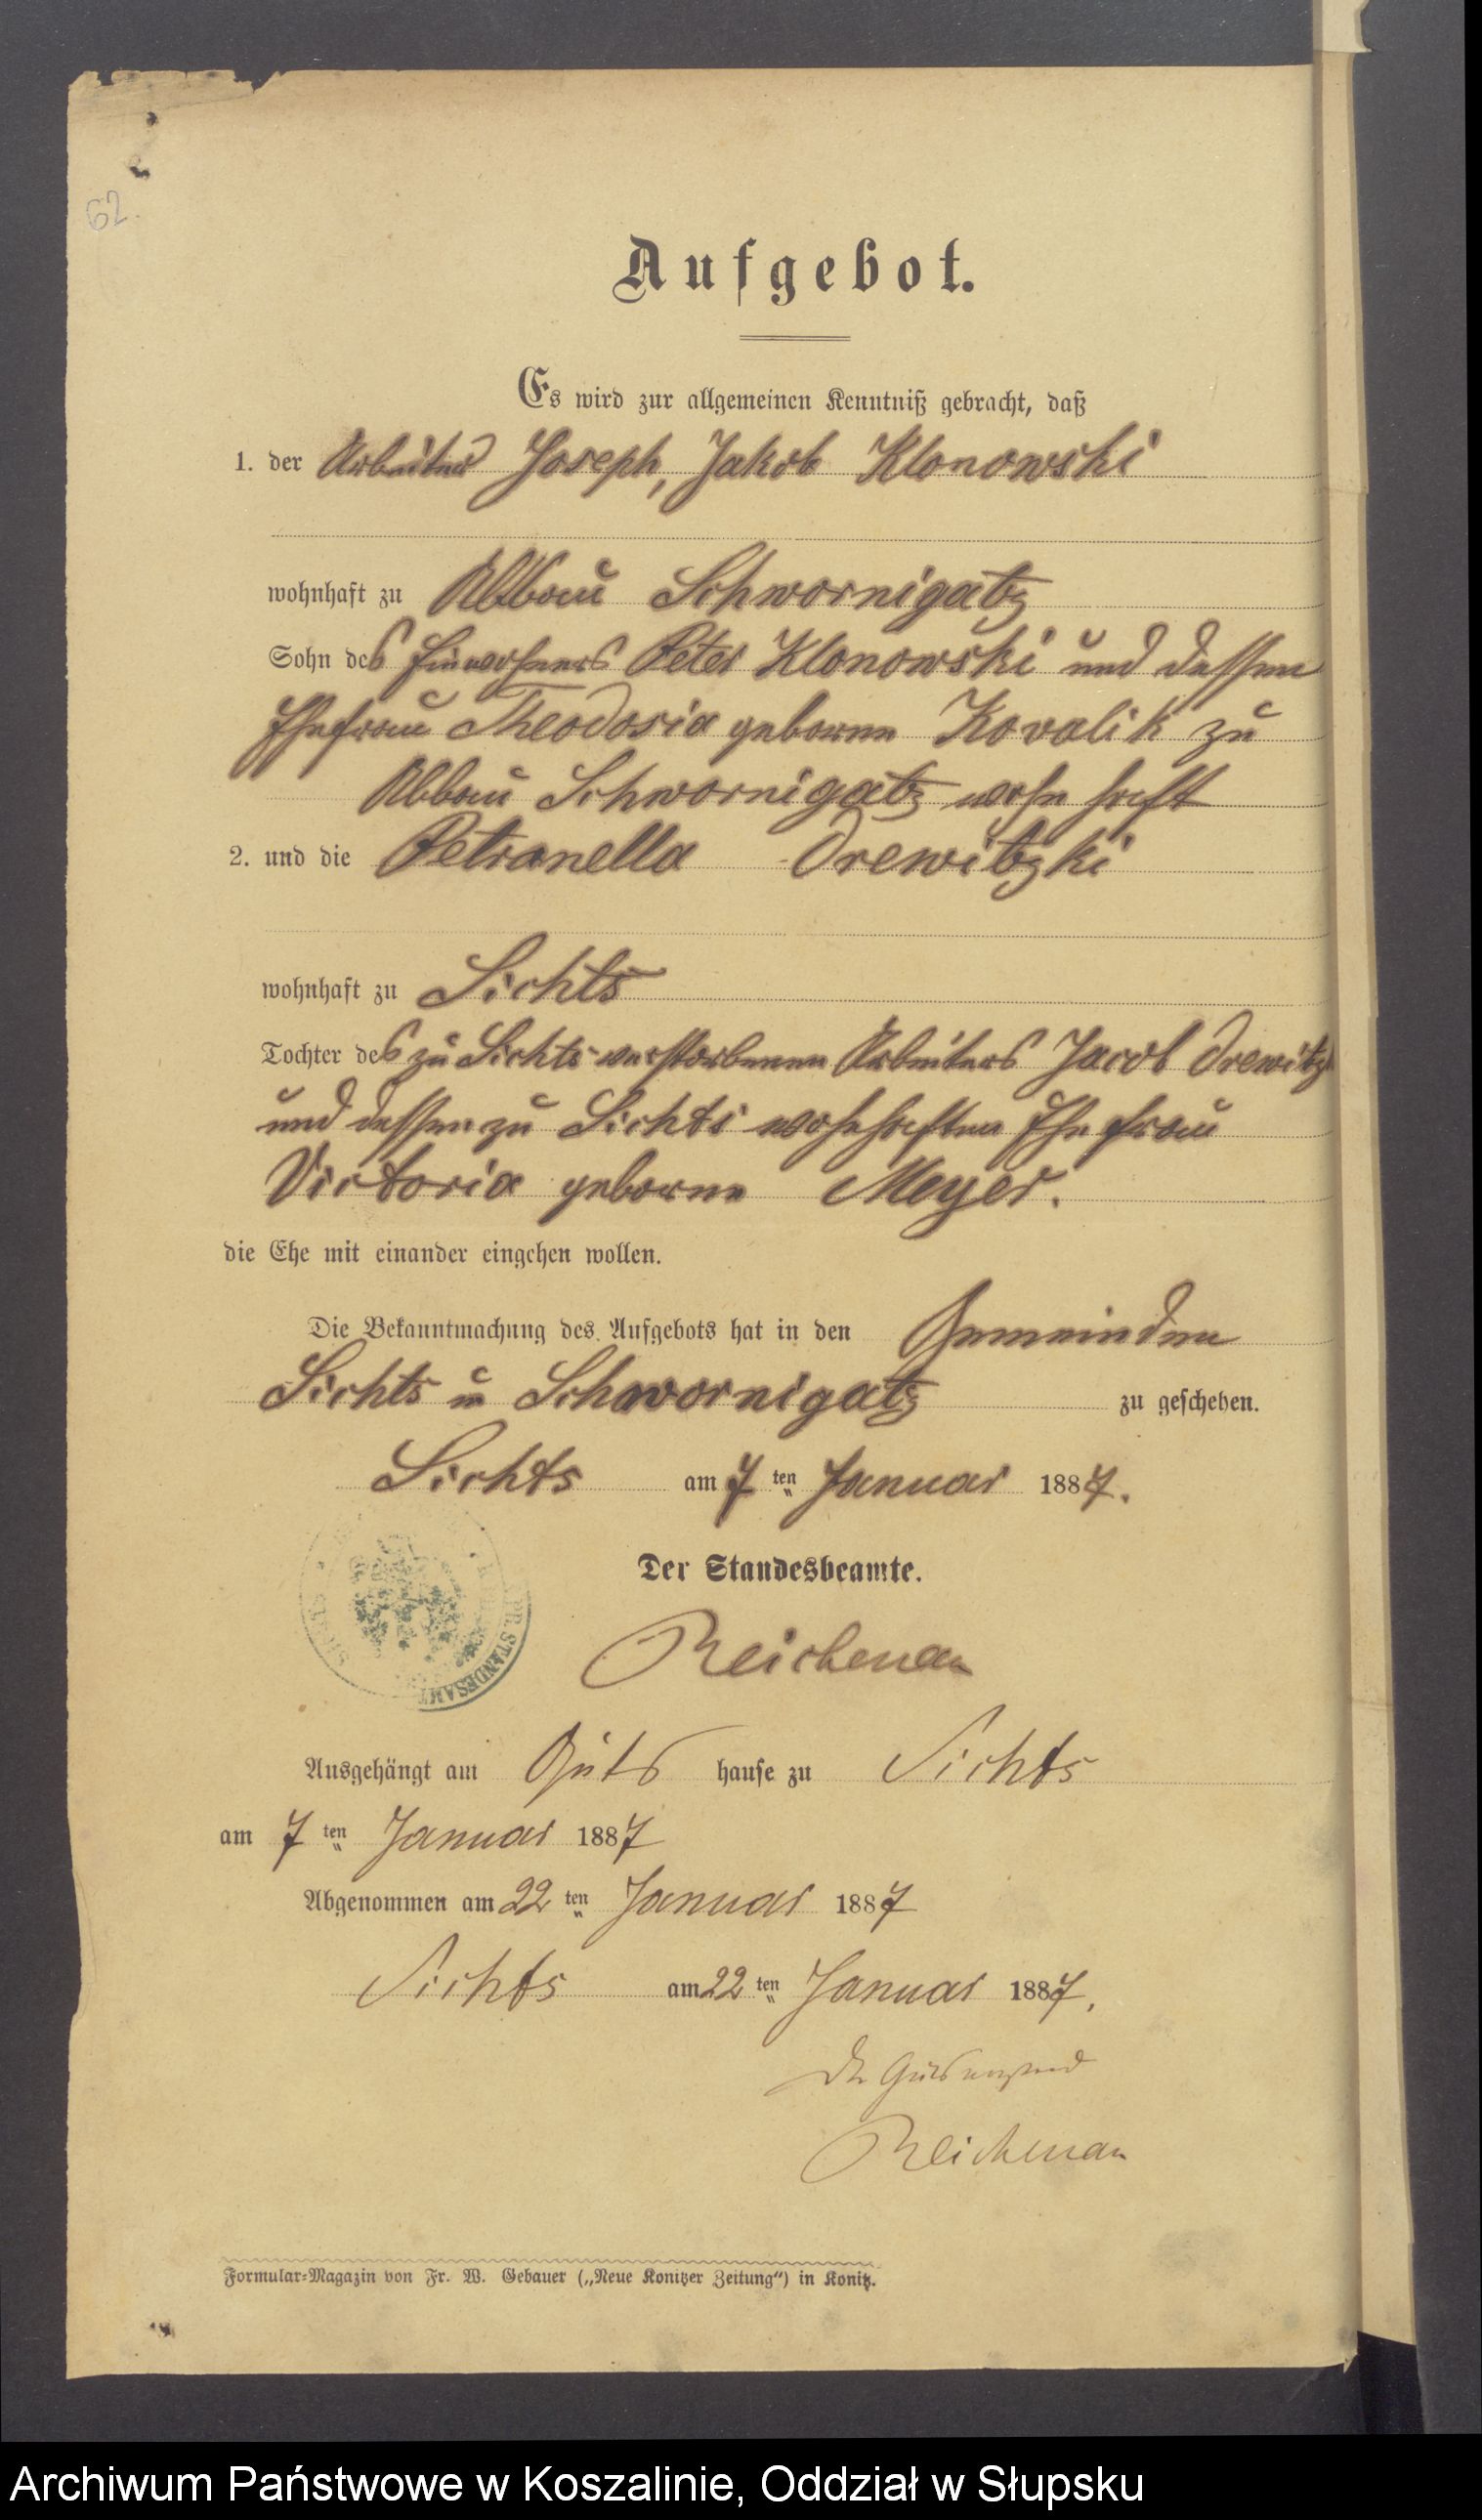 62.
Aufgebot.
Es wird zur allgemeinen Kenntniß gebracht, daß
1. der Arbeiter Joseph, Jakob Klonowski
wohnhaft zu Abbau Schwornigatz
Sohn des Einwohners Peter Klonowski und dessen
Ehefrau Theodosia geborne Kovalik zu
Abbau Schwornigatz wohnhaft
2. und die Petronella Drewitzki
wohnhaft zu Sichts
Tochter des zu Sichts verstorbenen Arbeiters Jacob Drewitz
und dessen zu Sichts wohnhaften Ehefrau
Victoria geborne Meyer.
die Ehe mit einander eingehen wollen.
Die Bekanntmachung des Aufgebots hat in den Gemeinden
Sichts u Schwornigatz zu geschehen.
Sichts am 7 ten Januar 1887.
Der Standesbeamte.
PR. STANDESAMT
SICHTS
Reichenau
Ausgehängt am Guts hause zu Sichts
am 7 ten Januar 1887
Abgenommen am 22 ten Januar 1887
Sichts am 22 ten Januar 1887.
Der
Reichenau
Formular-Magazin von Fr. W. Gebauer („Neue Konitzer Zeitung“) in Konitz.
Archiwum Państwowe w Koszalinie, Oddział w Słupsku